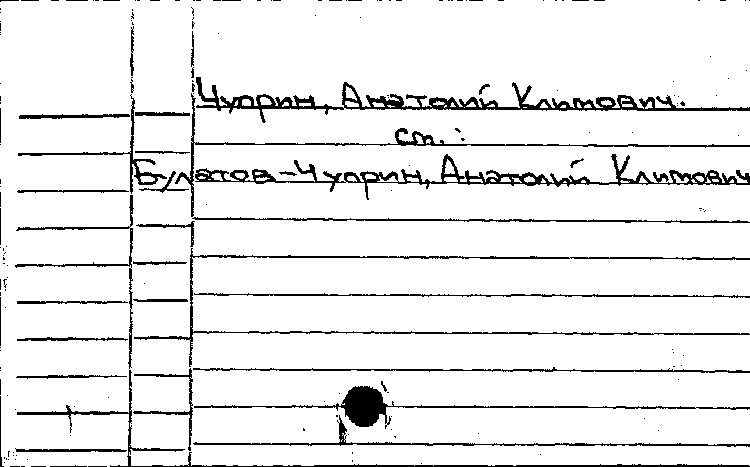 Чуприн, Анатолий Климович.
см.:
Булатов-Чуприн, Анатолий Климович